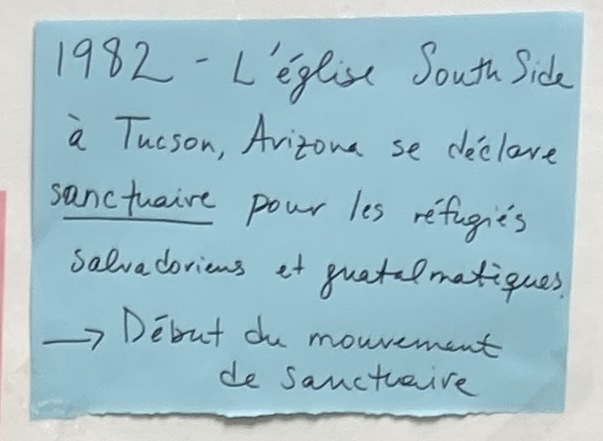 1982 - L'église South Side
à Tucson, Arizona se déclare
sanctuaire pour les réfugiés
salvadoriens et guatalmatèques.
→ Début du mouvement
de sanctuaire